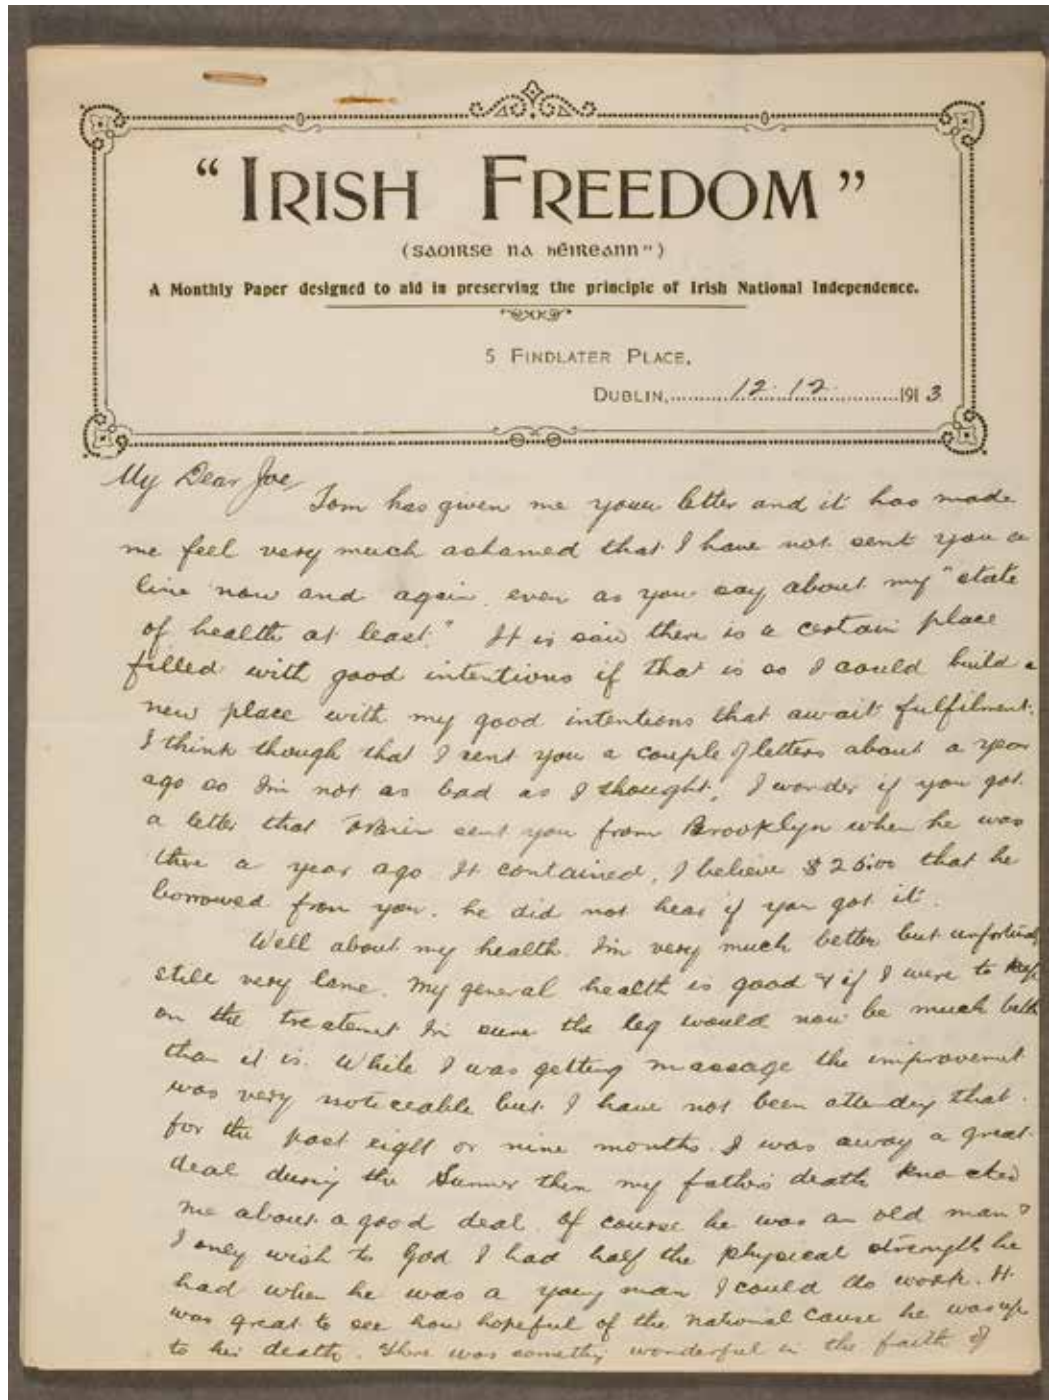 “IRISH FREEDOM”
(SAOIRSE NA hÉIREANN”)
A Monthly Paper designed to aid in preserving the principle of Irish National Independence.
5 FINDLATER PLACE,
DUBLIN,..........12.12..........1913
My Dear Joe,
Tom has given me your letter and it has made
me feel very much ashamed that I have not sent you a
line now and again, even as you say about my "state
of health at least." It is said there is a certain place
filled with good intentions if that is so I could build a
new place with my good intentions that await fulfilment.
I think though that I sent you a couple of letters about a year
ago so I'm not as bad as I thought! I wonder if you got
a letter that sent you from Brooklyn when he was
there a year ago. It contained, I believe $25.00 that he
borrowed from you. he did not hear if you got it.
Well about my health. I'm very much better but
still very lame. My general health is good & if I were to keep
on the treatment I'm sure the leg would now be much
than it is. While I was getting massage the improvement
was very noticeable but I have not been attending that
for the past eight or nine months. I was away a great
deal during the Summer then my father's death knocked
me about a good deal. Of course he was an old man &
I only wish to God I had half the physical strength he
had when he was a young man I could do work. It
was great to see how hopeful of the national cause he was up
to his death. There was something wonderful in the faith of